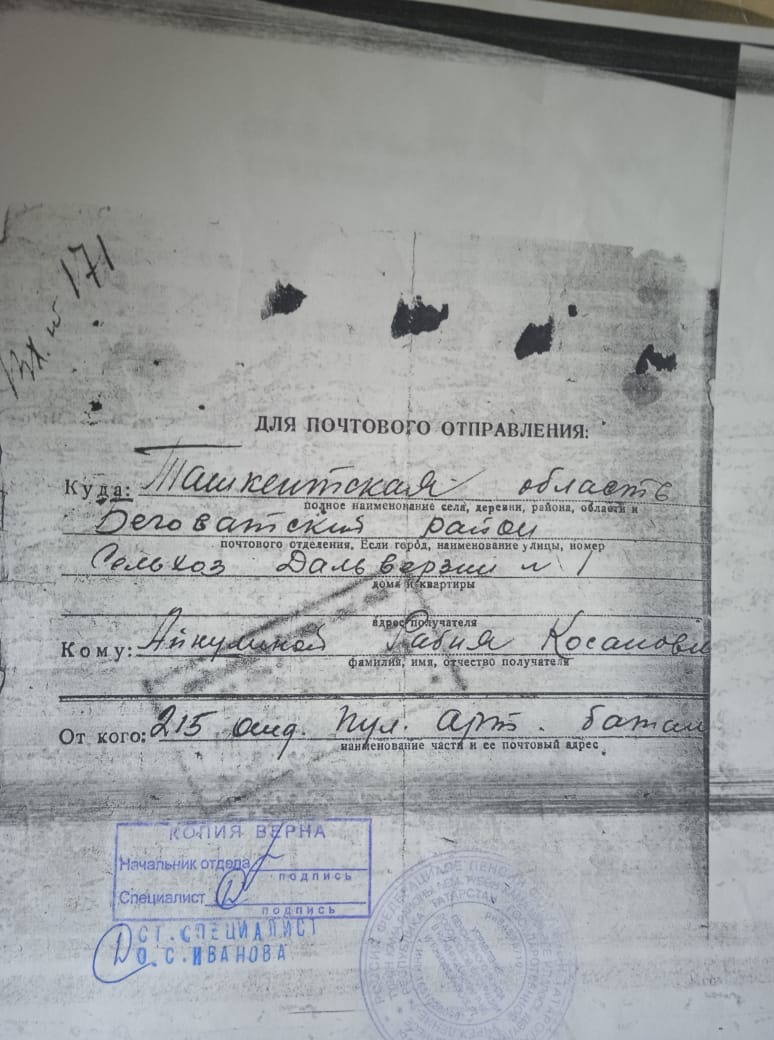 Вх. № 171
ДЛЯ ПОЧТОВОГО ОТПРАВЛЕНИЯ:
Куда: Ташкентская область
полное наименование села, деревни, района, области и
Беговатский район
почтового отделения. Если город, наименование улицы, номер
Сельхоз Дальверзин № 1
дома и квартиры
адрес получателя
Кому: Рабия
фамилия, имя, отчество получателя
От кого: 215 Пул. Арт. батал
наименование части и ее почтовый адрес
КОПИЯ ВЕРНА
Начальник отдела
подпись
Специалист
подпись
СТ. СПЕЦИАЛИСТ
О.С.ИВАНОВА